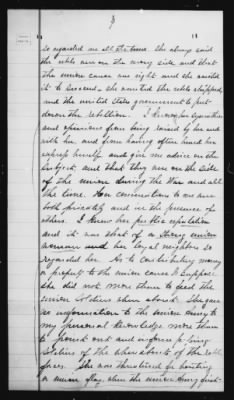 3
18
so regarded in all its time. She always said
the rebs are on the wrong side and that
the union cause was right and she wanted
it to succeed. she wanted the rebs whipped,
and the united States government to put
down the rebellion. I know her sympathies
and opinions from being raised by her and
with her, and from having often heard her
express herself and give me advice on the
subject, and that they are on the side
of the union during the war and all
the time. Her conversations to me are
both privately and in the presence of
others. I knew her public reputation
and it was that of a strong union
woman and her loyal neighbors so
regarded her. As to contributing money
or property to the union cause I suppose
she did not more than to feed the
union soldiers when about. She gave
no information to the union army to
my personal knowledge more than
to point out and inform
soldiers of the whereabouts of the rebel
forces. She was threatened for hoisting
a union flag, when the union army first